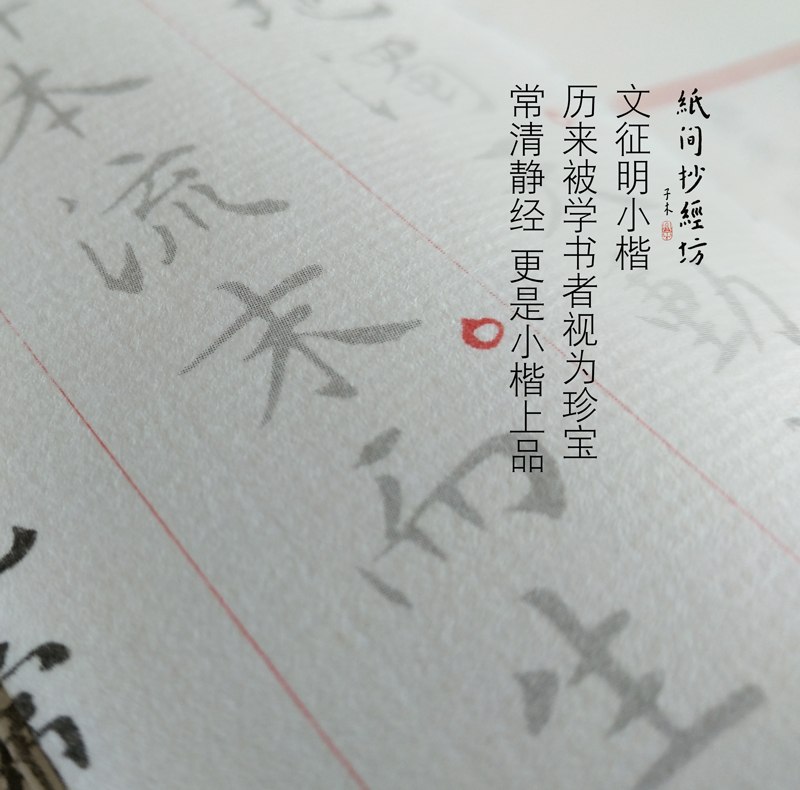 紙间抄經坊
子木
文征明小楷
历来被学书者视为珍宝
常清静经 更是小楷上品
本流末而生